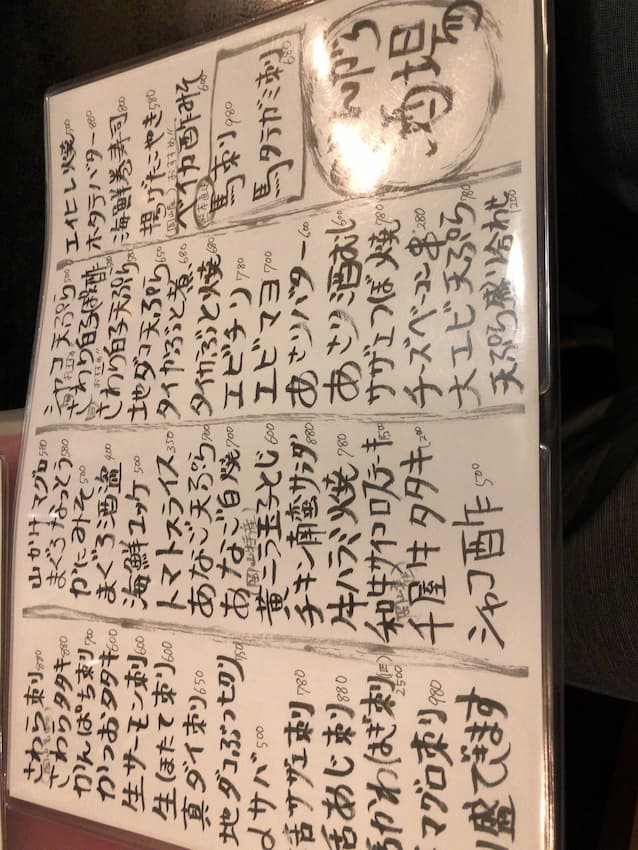 さわら刺 880
さわらタタキ 880
かんぱち刺 700
かつおタタキ 600
生サーモン刺 600
生ほたて刺 600
真ダイ刺 650
地ダコぶつ切り 750
〆サバ 500
サザエ刺 780
あじ刺 880
かわはぎ刺 2500
マグロ刺 980
盛できます
山かけマグロ 580
まぐろなっとう 580
かにみそ 500
まぐろ酒盗 400
海鮮ユッケ 500
トマトスライス 350
あなご天ぷら 700
あなご白焼 700
黄ニラ玉子とじ 600
チキン南蛮サラダ 880
牛ハラミ焼 780
和牛サイコロステーキ
千屋牛タタキ
シャコ酢 500
シャコ天ぷら 500
さわり白子ぽん酢
おすすめ
さわり白子天ぷら
地ダコ天ぷら 650
タイかぶと煮 680
タイかぶと焼 680
エビチリ 780
エビマヨ 700
あさりバター 600
あさり酒むし 600
サザエつぼ焼 780
チーズベーコン串 280
大エビ天ぷら 780
天ぷら盛り合わせ 1200
エイヒレ焼 500
ホタテバター 880
海鮮巻寿司 800
揚げたこやき 580
おすすめ!!
ベイカ酢みそ 600
馬刺 980
馬タテガミ刺 680
酒場の